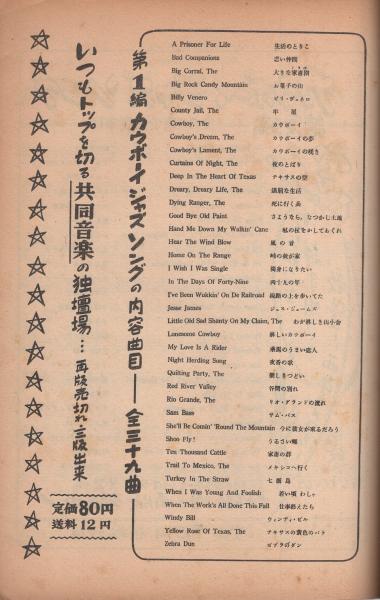 第1編 カウボーイジャズソングの内容曲目——全三十九曲
A Prisoner For Life 生活のとりこ
Bad Companions 悪い仲間
Big Corral, The 大きな家畜囲
Big Rock Candy Mountain お菓子の山
Billy Venero ビリ・ヴェネロ
County Jail, The 牢屋
Cowboy, The カウボーイ
Cowboy's Dream, The カウボーイの夢
Cowboy's Lament, The カウボーイの嘆き
Curtains Of Night, The 夜のとばり
Deep In The Heart Of Texas テキサスの空
Dreary, Dreary Life, The 憂鬱な生活
Dying Ranger, The 死に行く兵
Good Bye Old Paint さようなら、なつかし土地
Hand Me Down My Walkin' Cane 私の杖をかしておくれ
Hear The Wind Blow 風の音
Home On The Range 峠の我が家
I Wish I Was Single 独身になりたい
In The Days Of Forty-Nine 四十九の年
I've Been Wukkin' On De Railroad 線路の上を歩いてた
Jesse James ジェス・ジェームズ
Little Old Sad Shanty On My Claim, The わが淋しき山小舎
Lonesome Cowboy 淋しいカウボーイ
My Love Is A Rider 乗馬のうまい恋人
Night Herding Song 夜番の歌
Quilting Party, The 楽しきつどい
Red River Valley 谷間の別れ
Rio Grande, The リオ・グランドの流れ
Sam Bass サム・バス
She'll Be Comin' 'Round The Mountain 今に彼女が来るだろう
Shoo Fly! うるさい蠅
Ten Thousand Cattle 家畜の群
Trail To Mexico, The メキシコへ行く
Turkey In The Straw 七面鳥
When I Was Young And Foolish 若い頃わしゃ
When The Work's All Done This Fall 仕事終えたら
Windy Bill ウィンディ・ビル
Yellow Rose Of Texas, The テキサスの黄色のバラ
Zebra Dun ゼブラのダン
いつもトップを切る共同音楽の独壇場…再版売切れ三版出来
定価80円
送料12円